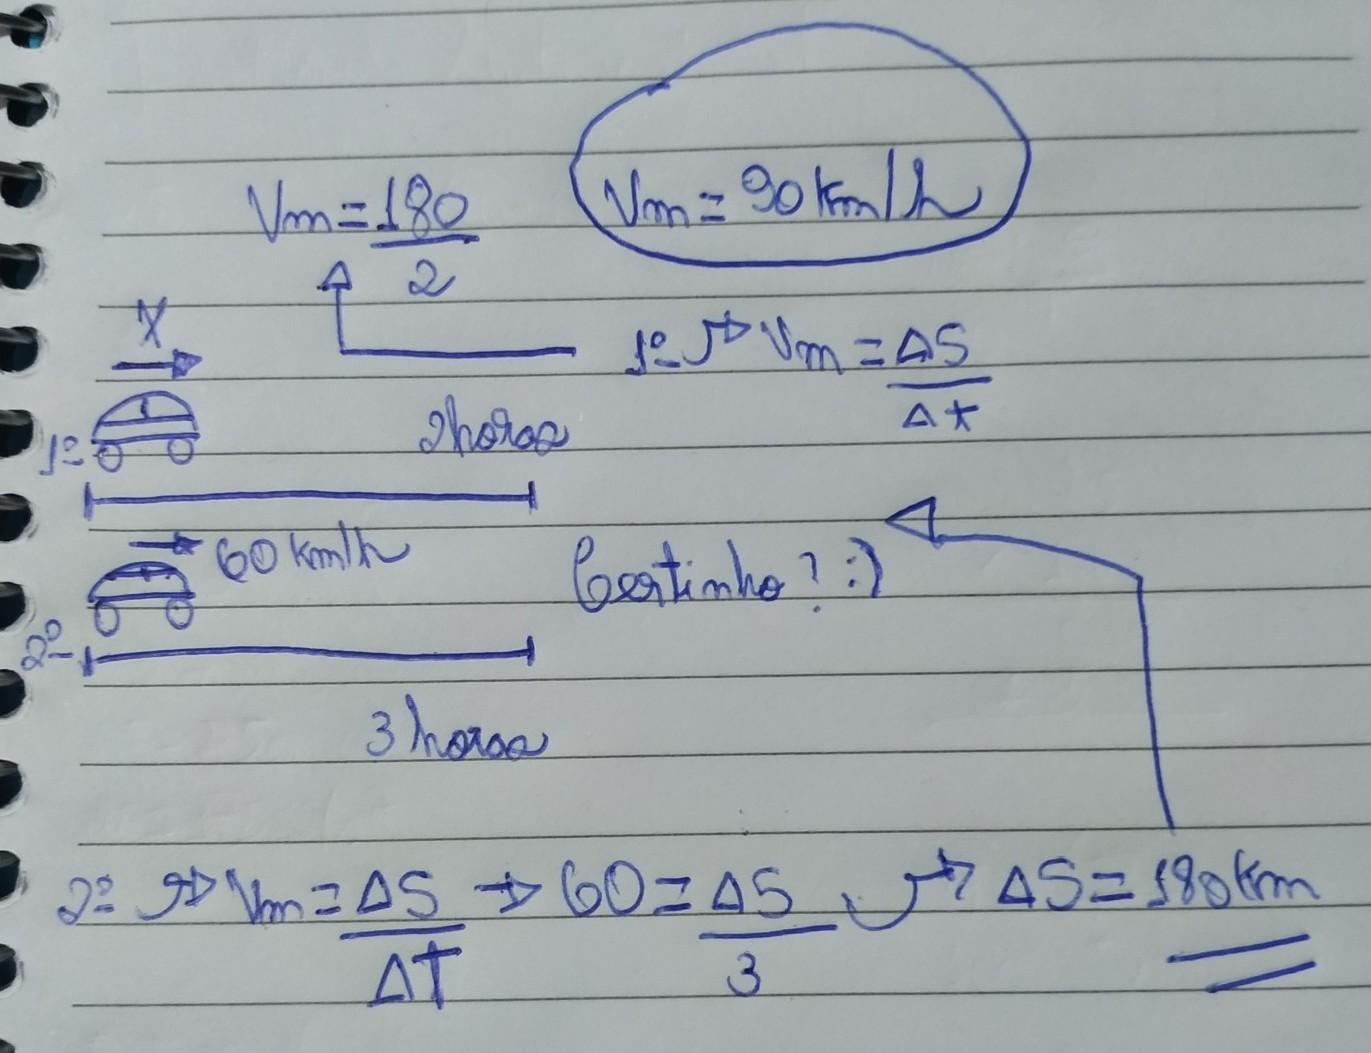 Vm = 180/2
Vm = 90 km/h
X
1º → Vm = ΔS/Δt
1º
2 horas
60 km/h
Certinho? :)
2º
3 horas
2º → Vm = ΔS/ΔT → 60 = ΔS/3 → ΔS = 180 km